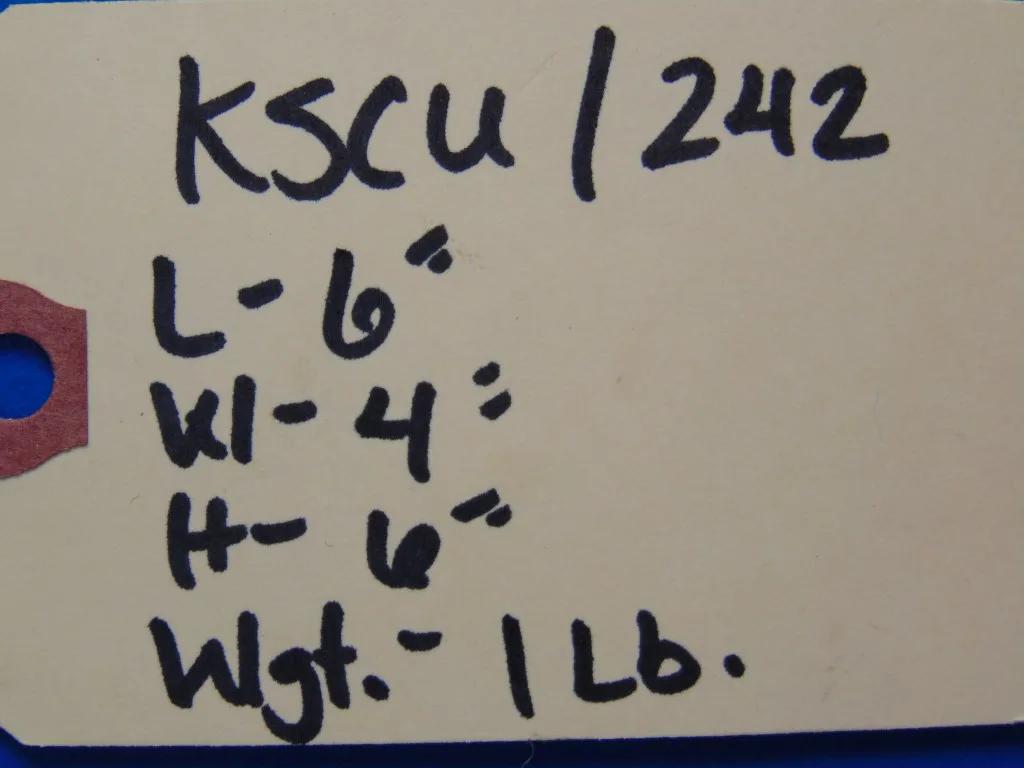 KSCU/242
L- 6"
W- 4"
H- 6"
Wgt.- 1 Lb.